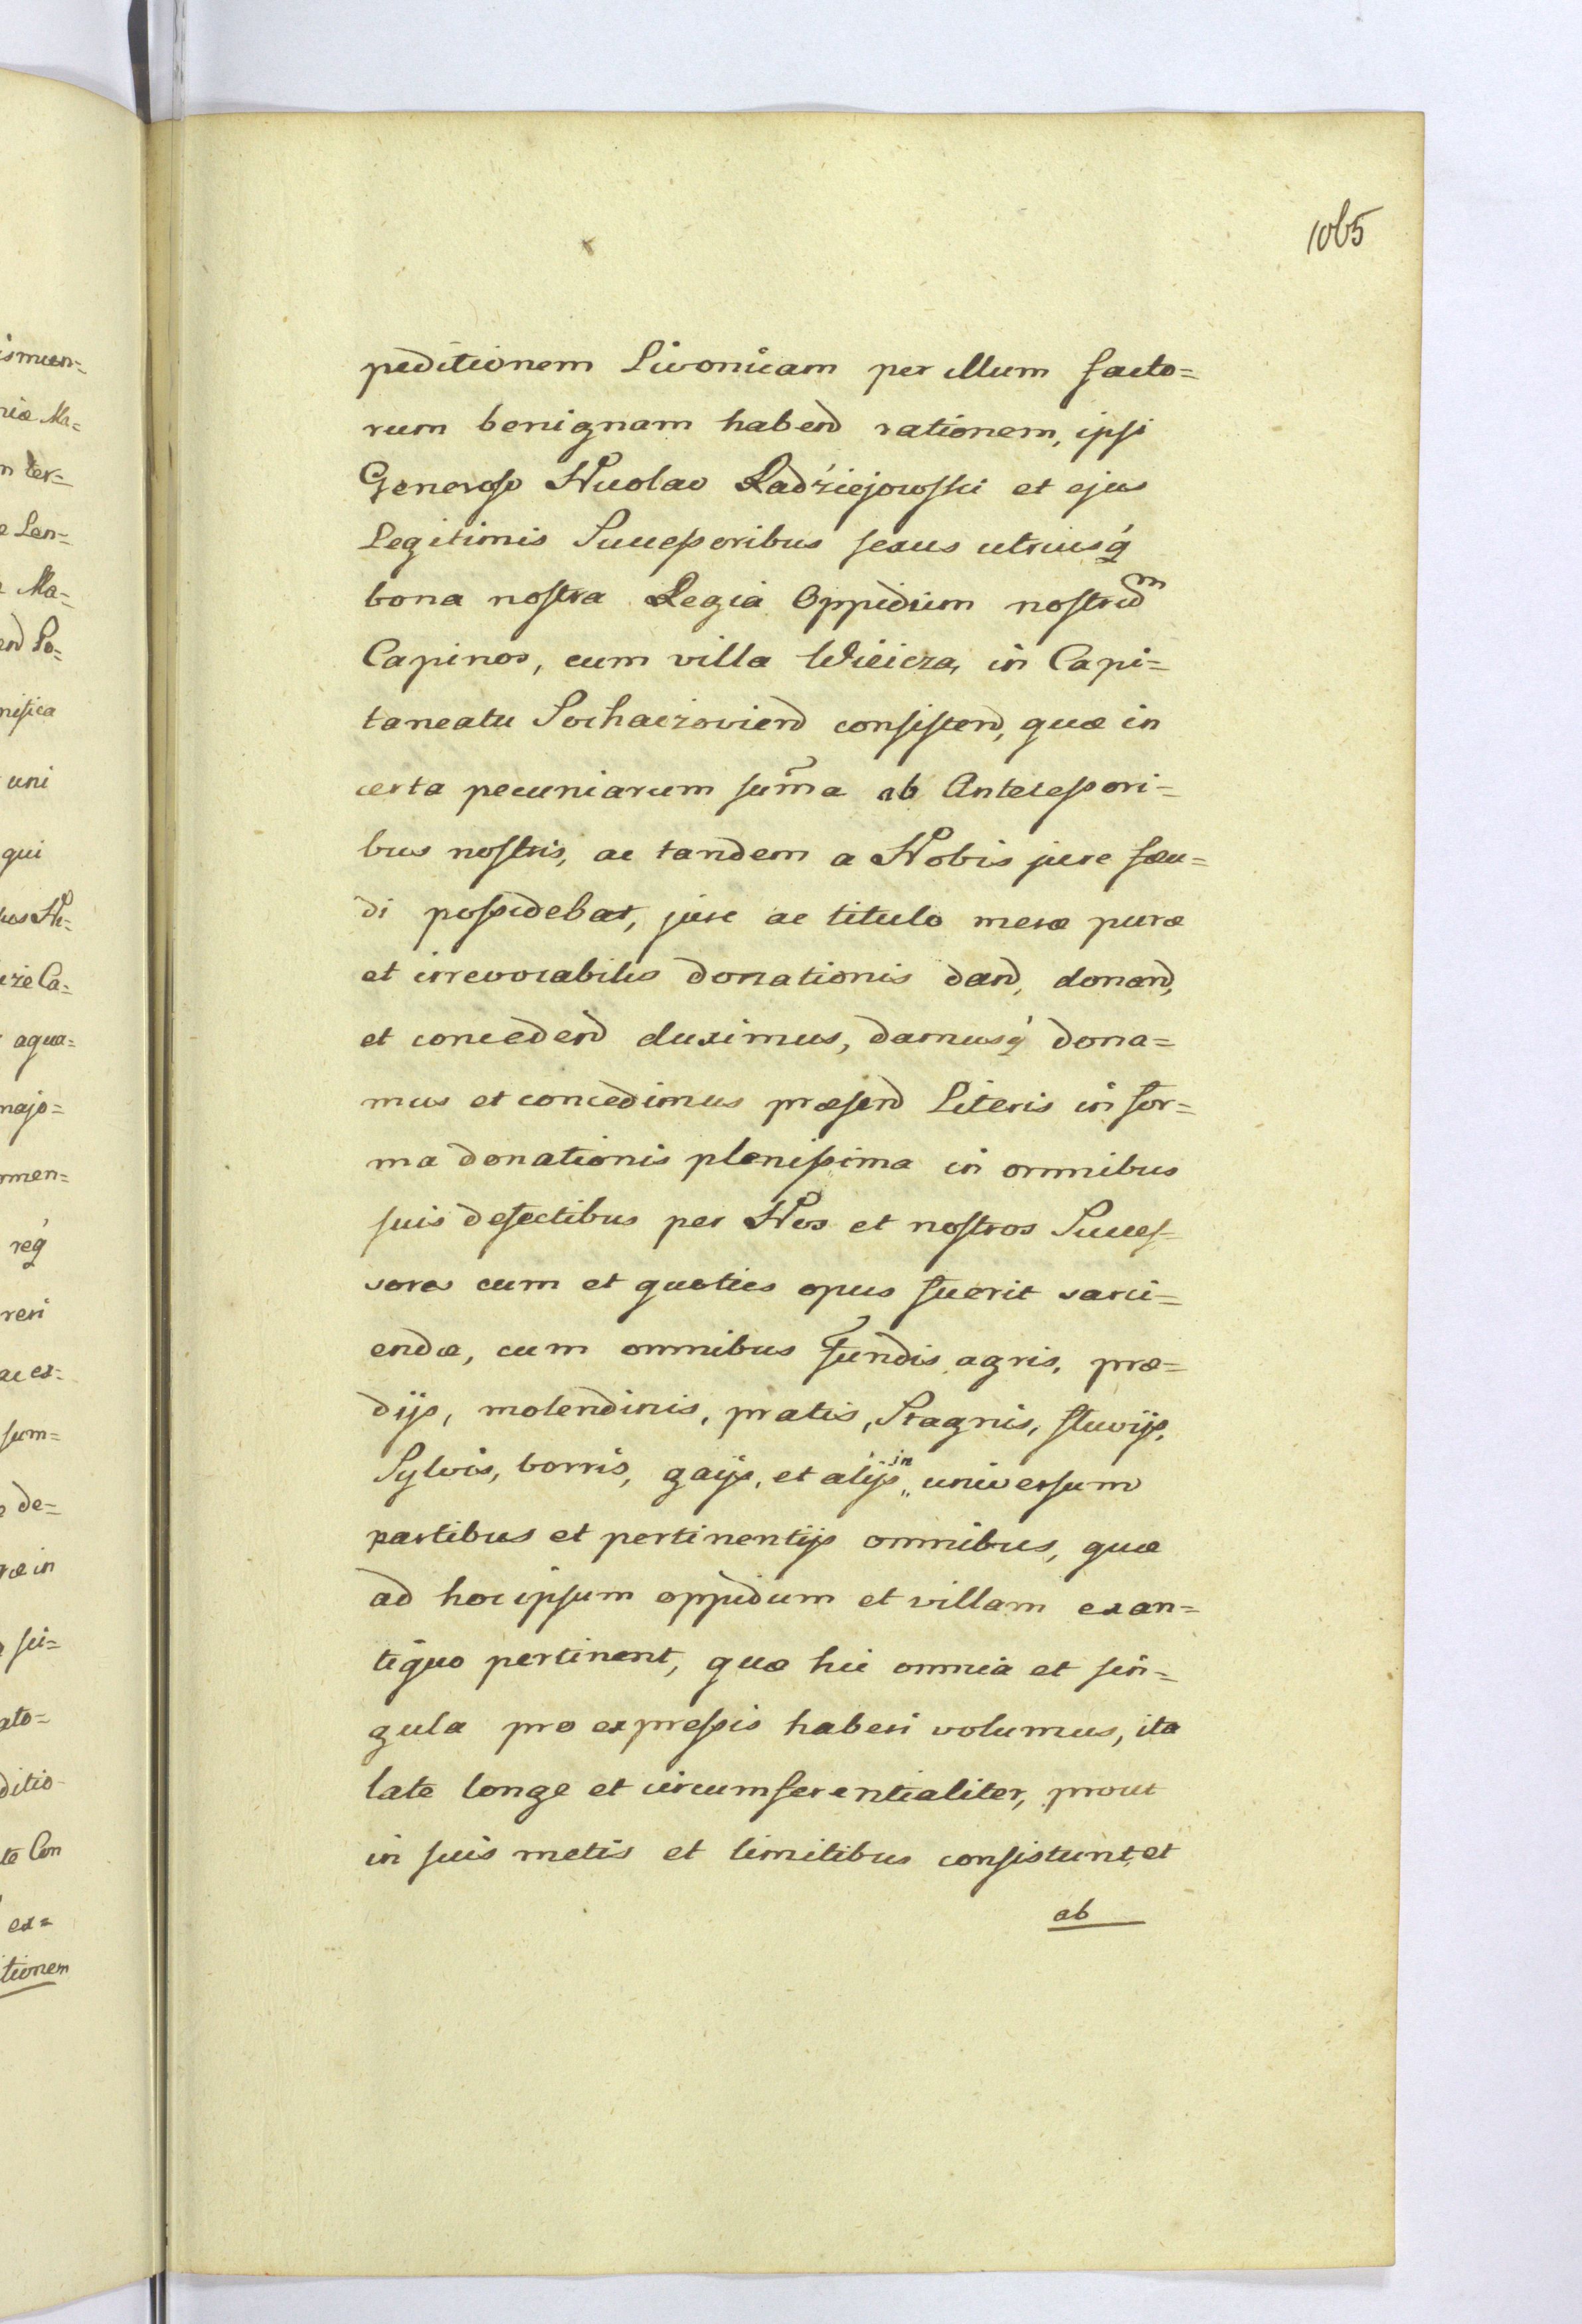 1065
peditionem Livonicam per illum facto=
rum benignam habend rationem, ipsi
Generoso Nicolao Radziejowski et ejus
Legitimis Successoribus sexus utriusq́
bona nostra Regia Oppidum nostrum
Capinos, cum villa Wieicza, in Capi=
taneatu Sochaczoviend consistend, quæ in
certa pecuniarum sum̃a ab Antecessori=
bus nostris, ac tandem a Nobis jure feu=
di possidebat, jure ac titulo meræ puræ
et irrevocabilis donationis dand, donand,
et concedend duximus, damusq́ dona=
mus et concedimus præsend Literis in for=
ma donationis plenissima in omnibus
suis defectibus per Nos et nostros Succes=
sores cum et quoties opus fuerit sarci=
endæ, cum omnibus fundis agris, præ=
dijs, molendinis, pratis, Stagnis, fluvijs,
Sylvis, borris, gajis, et alijs in universum
partibus et pertinentijs omnibus, quæ
ad hoc ipsum oppidum et villam exan=
tiquo pertinent, quæ hic omnia et sin=
gula pro expressis haberi volumus, ita
late longe et circumferentialiter, prout
in suis metis et limitibus consistunt, et
ab
ismun=
niæ Ma=
m ter=
e Len=
Ma=
end Po=
nifica
uni
qui
uos Ni=
ize Ca=
aqua=
majo=
rmen=
req́
reri
ac ex=
sum=
de=
ræ in
sci=
ato=
ditio
te Con
ex=
itionem